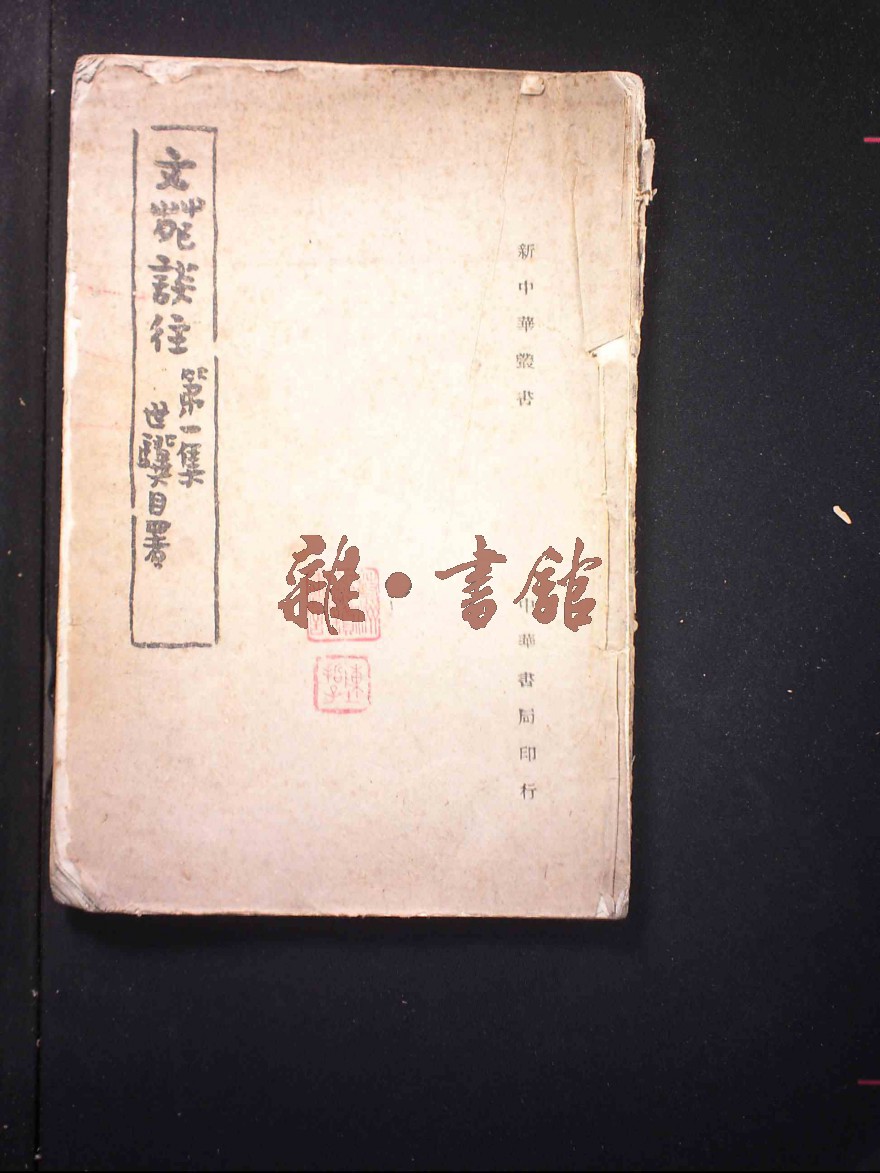 新中華叢書
中華書局印行
文苑談往
第一集
世驥自署
雜·書館